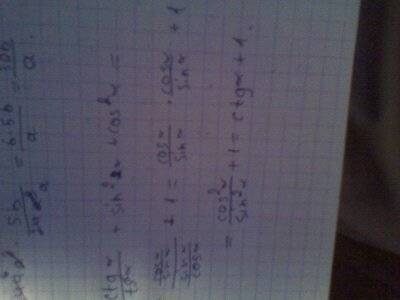 5b / a = 6·5b / a = 30b / a
ctgα / tgα + sin²α + cos²α =
cosα/sinα / sinα/cosα + 1 = cosα/sinα · cosα/sinα + 1
= cos²α / sin²α + 1 = ctgα + 1.